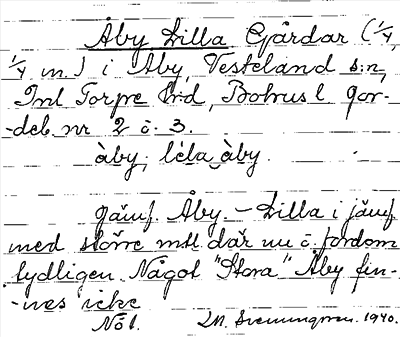 Åby Lilla Gårdar (1/4,
1/4 m.) i Åby, Tosteland s:n,
Inl Torpe hrd, Bohus l gor-
-deb. nr 2 o. 3.
àby, lèla àby.
Jämf. Åby. – Lilla i jämf
med större mtl där nu o. fordom
tydligen. Något "Stora" Åby fin-
-nes icke
1940.